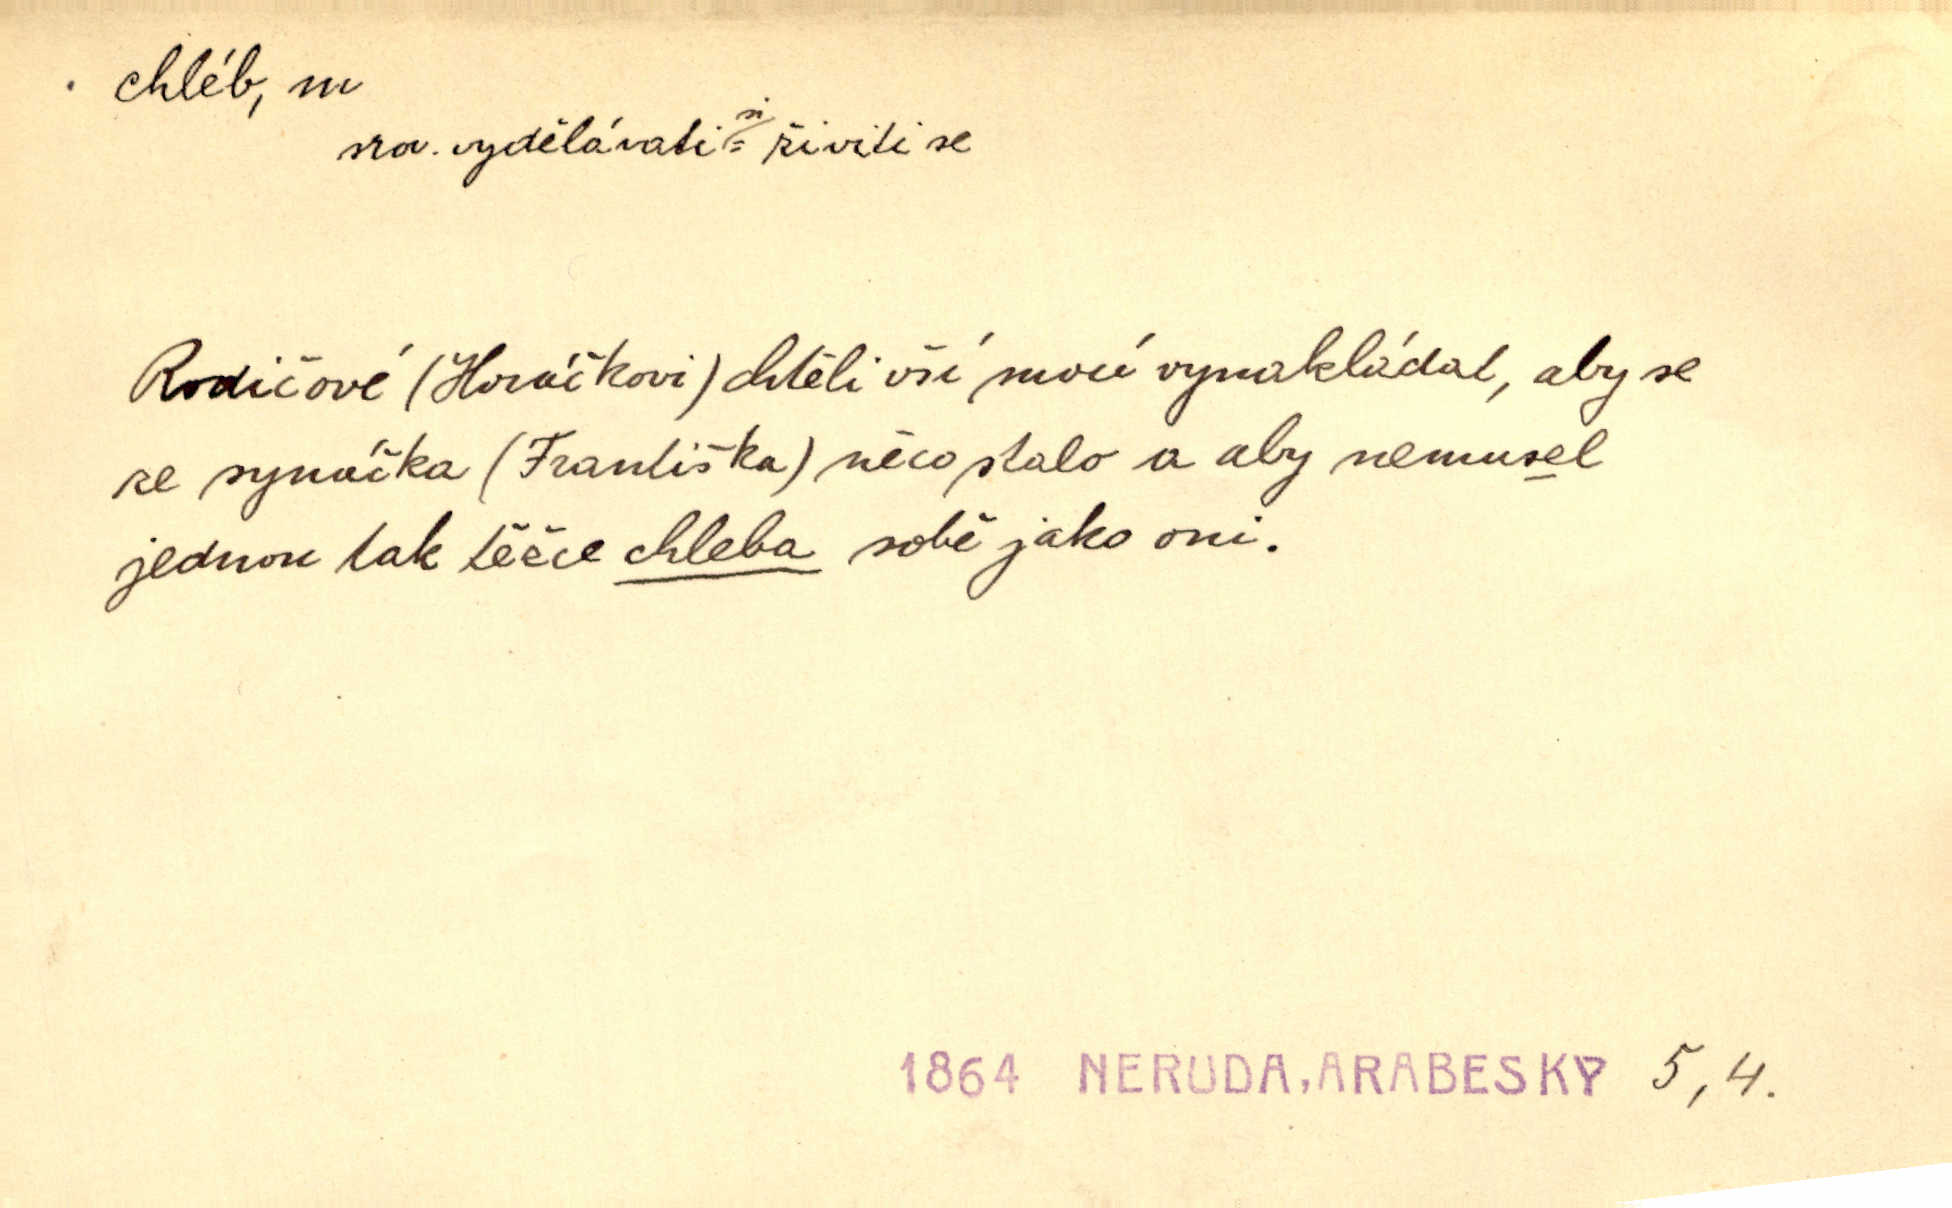 chléb, m
srov. vydělávati si = živiti se
Rodičové (Horáčkovi) chtěli vší mocí vynakládat, aby se
ze synáčka (Františka) něco stalo a aby nemusel
jednou tak těžce chleba sobě jako oni.
1864 NERUDA, ARABESKY 5, 4.